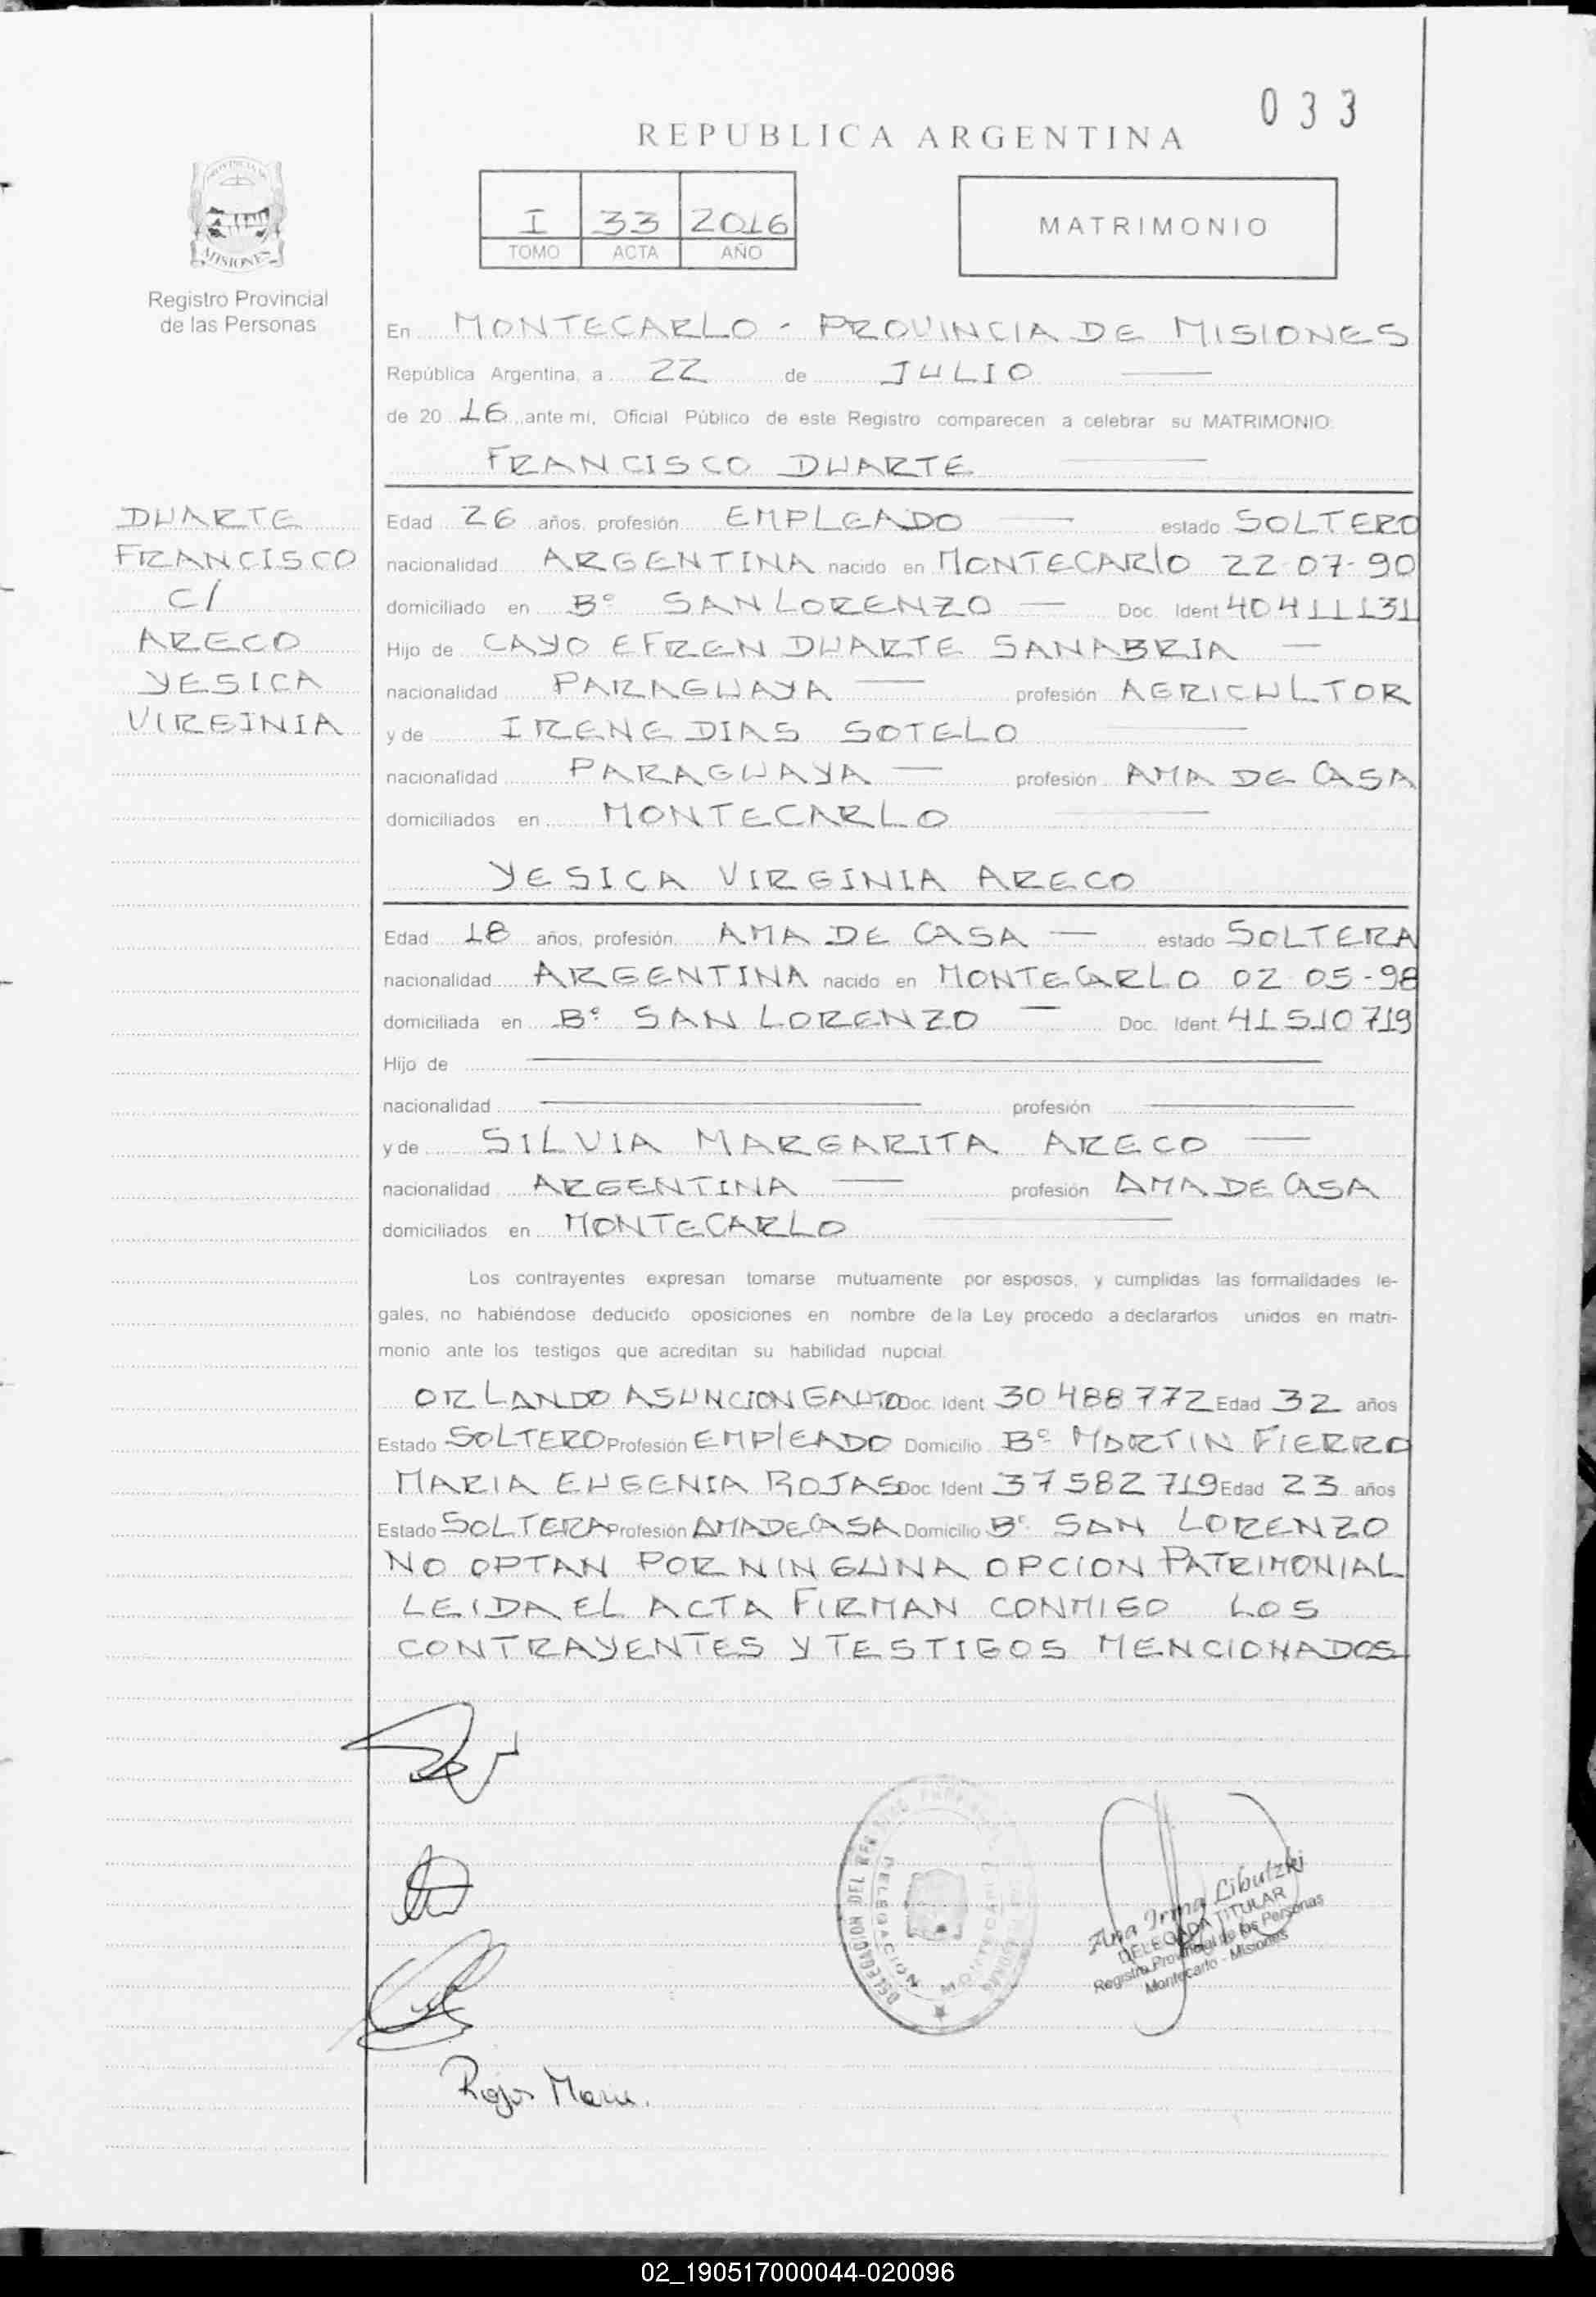 033
REPUBLICA ARGENTINA
I 33 2016
TOMO ACTA AÑO
MATRIMONIO
Registro Provincial
de las Personas
En MONTECARLO - PROVINCIA DE MISIONES
República Argentina, a 22 de JULIO
de 20 16 ante mi, Oficial Público de este Registro comparecen a celebrar su MATRIMONIO:
FRANCISCO DUARTE
DUARTE
FRANCISCO
C/
ARECO
YESICA
VIRGINIA
Edad 26 años, profesión EMPLEADO estado SOLTERO
nacionalidad ARGENTINA nacido en MONTECARlO 22-07-90
domiciliado en Bº SAN LORENZO Doc. Ident 40411131
Hijo de CAYO EFREN DUARTE SANABRIA
nacionalidad PARAGUAYA profesión AGRICULTOR
y de IRENE DIAS SOTELO
nacionalidad PARAGUAYA profesión AMA DE CASA
domiciliados en MONTECARLO
YESICA VIRGINIA ARECO
Edad 18 años, profesión AMA DE CASA estado SOLTERA
nacionalidad ARGENTINA nacido en MONTECARLO 02 05-98
domiciliada en Bº SAN LORENZO Doc. Ident. 41510719
Hijo de
nacionalidad profesión
y de SILVIA MARGARITA ARECO
nacionalidad ARGENTINA profesión AMA DE CASA
domiciliados en MONTECARLO
Los contrayentes expresan tomarse mutuamente por esposos, y cumplidas las formalidades le-
gales, no habiéndose deducido oposiciones en nombre de la Ley procedo a declararlos unidos en matri-
monio ante los testigos que acreditan su habilidad nupcial.
ORLANDO ASUNCION GAUTO Doc. Ident 30 488 772 Edad 32 años
Estado SOLTERO Profesión EMPlEADO Domicilio Bº MARTIN FIERRO
MARIA EUGENIA ROJAS Doc. Ident 37 582 719 Edad 23 años
Estado SOLTERA Profesión AMA DE CASA Domicilio Bº SAN LORENZO
NO OPTAN POR NINGUNA OPCION PATRIMONIAL
LEIDA EL ACTA FIRMAN CONMIGO LOS
CONTRAYENTES Y TESTIGOS MENCIONADOS
DELEGACION DEL
DELEGACION MONTECARLO
Ana Irma Libutzki
DELEGADA TITULAR
Registro Provincial de las Personas
Montecarlo - Misiones
Rojas Maria.
02_190517000044-020096